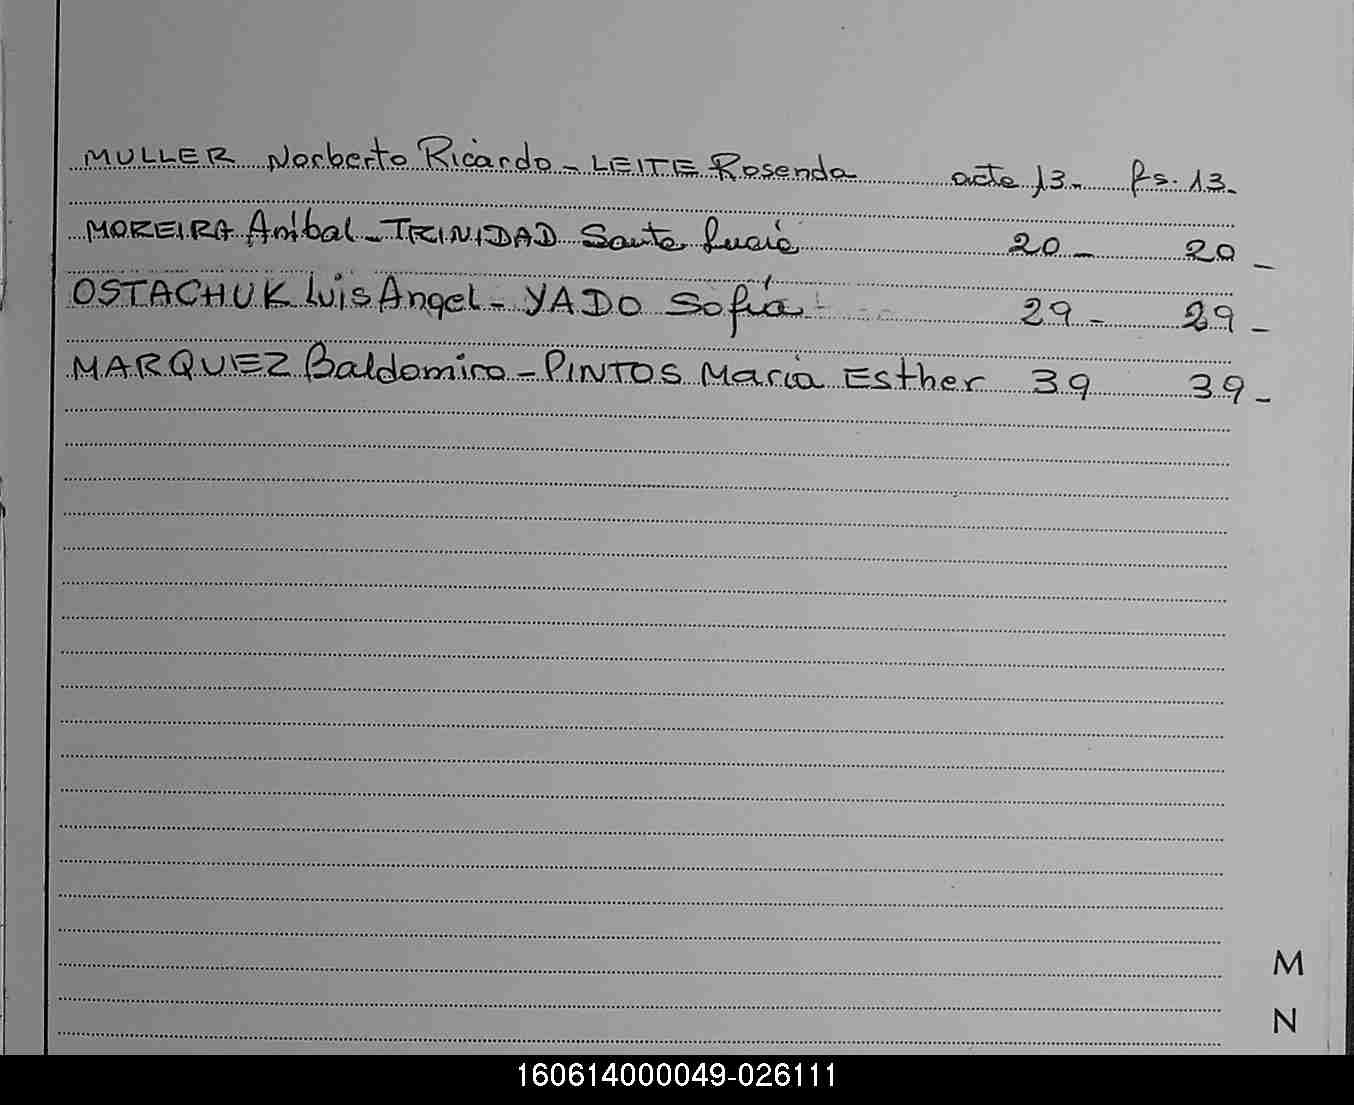 MULLER Norberto Ricardo - LEITE Rosenda acta 13 - fs. 13 -
MOREIRA Anibal - TRINIDAD Santa Lucia 20 - 20 -
OSTACHUK Luis Angel - YADO Sofía 29 - 29 -
MARQUEZ Baldomiro - PINTOS Maria Esther 39 39 -
M
N
160614000049-026111